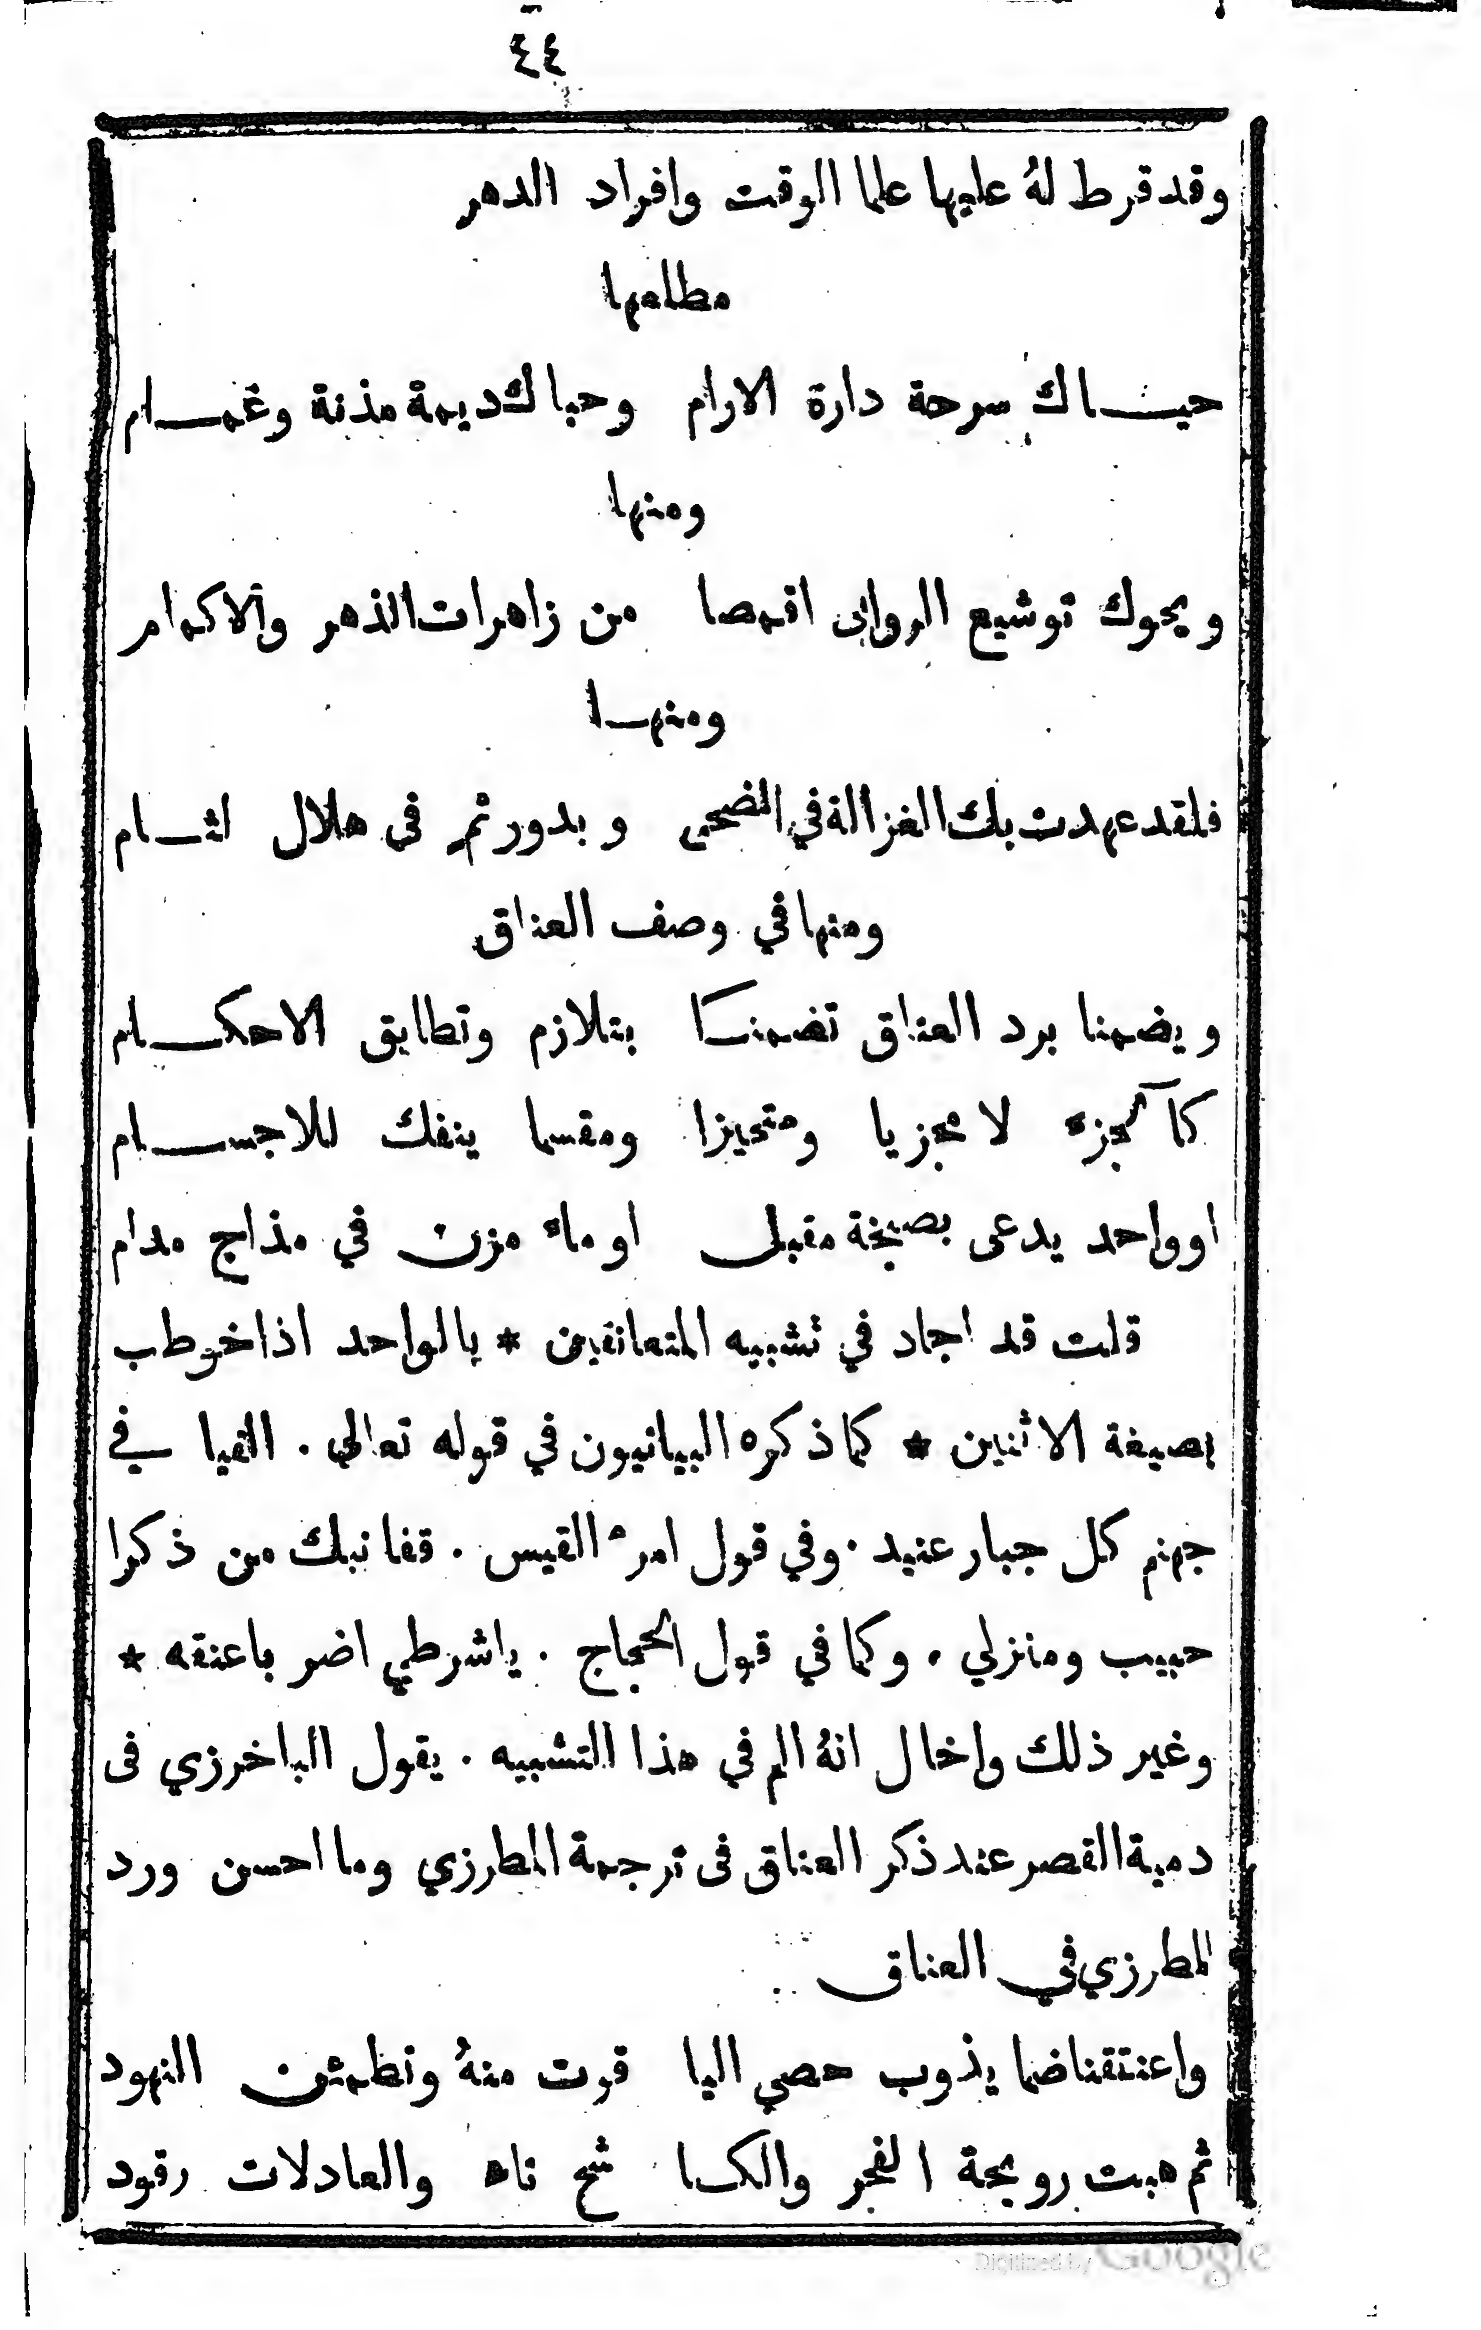 ٤٤
وقد قرط لهُ عليها علما الوقت وافراد الدهر
مطلعها
حيـاك سرحة دارة الارام وحباك ديمة مذنة وغمـام
ومنها
ويحوك توشيع الروابى اقمصا من زاهرات الذهر والاكمام
ومنهـا
فلقد عهدت بك الغزالة في الضحى وبدور تم فى هلال لثـام
ومنها في وصف العناق
ويضمنا برد العناق تضمنـا بتلازم وتطابق الاحكـام
كالجزء لا مجزيا ومتحيزا ومقسما ينفك للاجسـام
او واحد يدعى بصيخة مقبل او ماء مزن في مذاج مدام
قلت قد اجاد في تشبيه المتعانقين * بالواحد اذا خوطب
بصيغة الاثنين * كما ذكره البيانيون في قوله تعالي . القيا في
جهنم كل جبار عنيد . وفي قول امرء القيس . قفا نبك من ذكرا
حبيب ومنزلي . وكما في قول الحجاج . يا شرطي اضربا عنقه *
وغير ذلك واخال انهُ الم في هذا التشبيه . يقول الباخرزي فى
دمية القصر عند ذكر العناق فى ترجمة المطرزي وما احسن ورد
المطرزي في العناق
واعتنقنا ضما يذوب حصي اليا قوت منهُ وتطمئن النهود
ثم هبت رويحة الفجر والكـا شح ناه والعادلات رقود
Digitized by Google